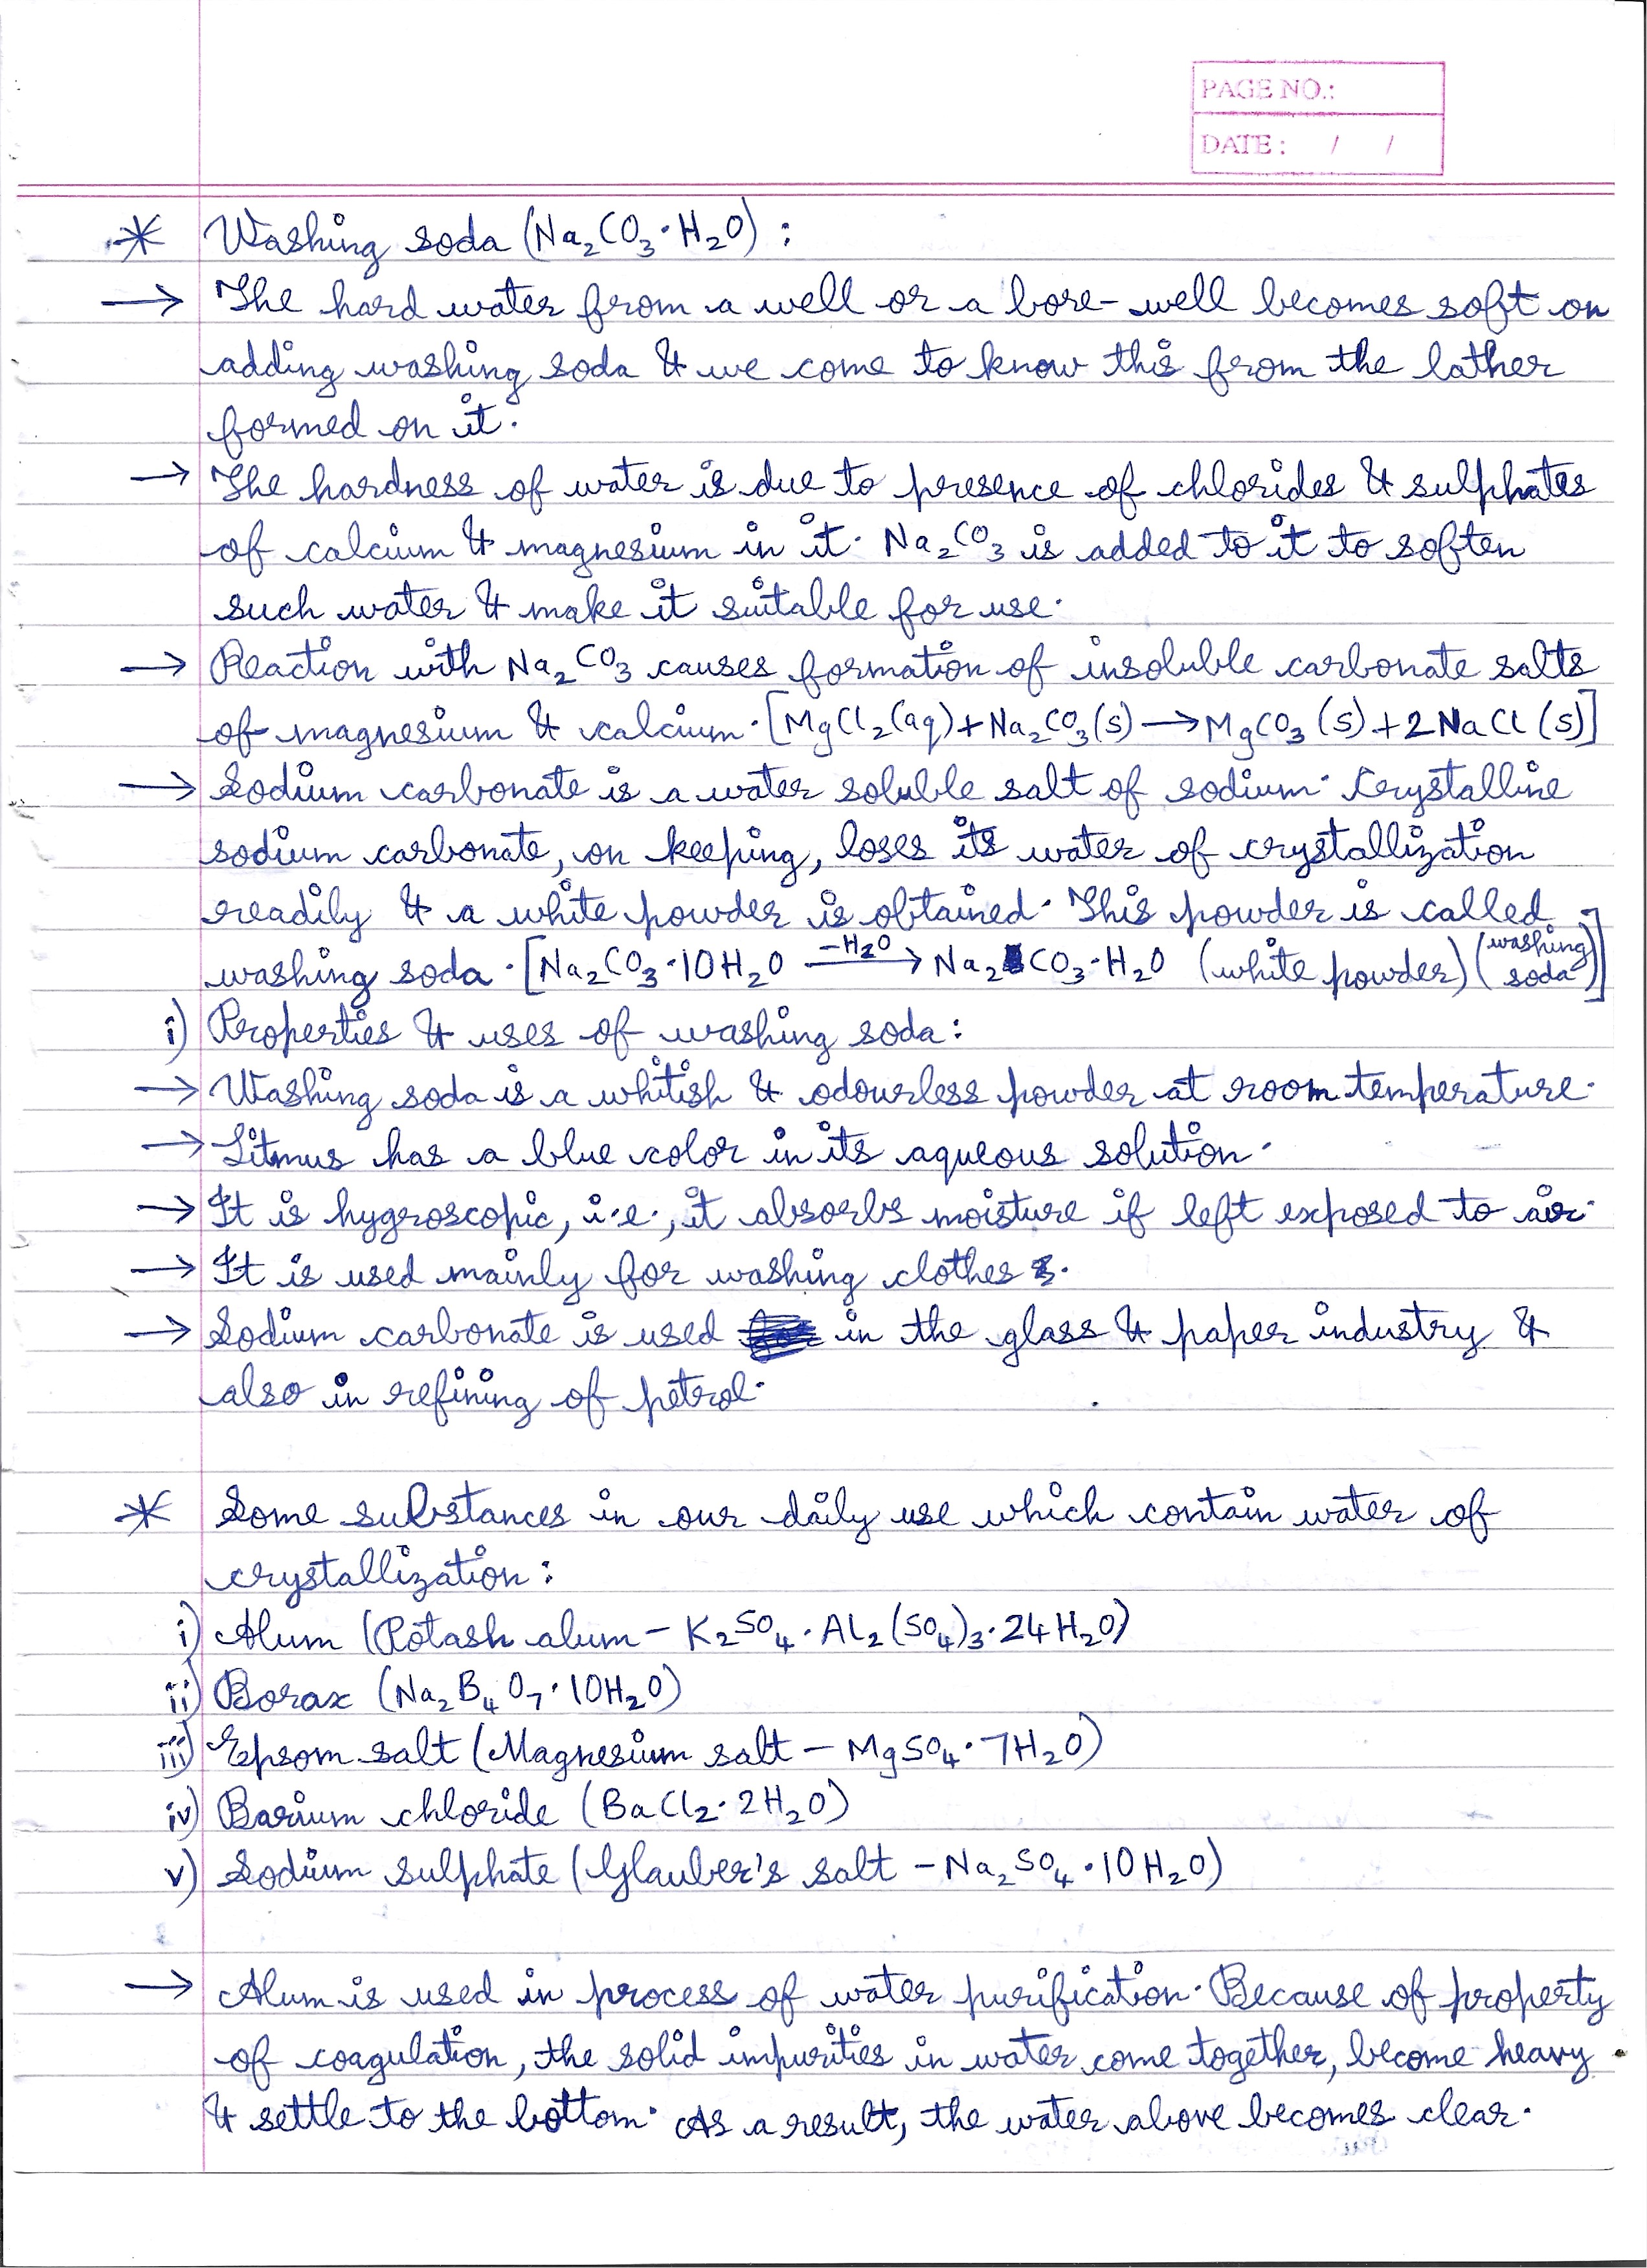 PAGE NO.:
DATE : / /
* Washing soda (Na₂CO₃·H₂O) :
→ The hard water from a well or a bore-well becomes soft on
adding washing soda & we come to know this from the lather
formed on it.
→ The hardness of water is due to presence of chlorides & sulphates
of calcium & magnesium in it. Na₂CO₃ is added to it to soften
such water & make it suitable for use.
→ Reaction with Na₂CO₃ causes formation of insoluble carbonate salts
of magnesium & calcium. [MgCl₂(aq)+Na₂CO₃(s)→MgCO₃(s)+2NaCl(s)]
→ Sodium carbonate is a water soluble salt of sodium. Crystalline
sodium carbonate, on keeping, loses its water of crystallization
readily & a white powder is obtained. This powder is called
washing soda. [Na₂CO₃·10H₂O –H₂O→ Na₂CO₃·H₂O (white powder) (washing soda)]
i) Properties & uses of washing soda :
→ Washing soda is a whitish & odourless powder at room temperature.
→ Litmus has a blue color in its aqueous solution.
→ It is hygroscopic, i.e., it absorbs moisture if left exposed to air.
→ It is used mainly for washing clothes.
→ Sodium carbonate is used in the glass & paper industry &
also in refining of petrol.
* Some substances in our daily use which contain water of
crystallization :
i) Alum (Potash alum – K₂SO₄·Al₂(SO₄)₃·24H₂O)
ii) Borax (Na₂B₄O₇·10H₂O)
iii) Epsom salt (Magnesium salt – MgSO₄·7H₂O)
iv) Barium chloride (BaCl₂·2H₂O)
v) Sodium sulphate (Glauber's salt – Na₂SO₄·10H₂O)
→ Alum is used in process of water purification. Because of property
of coagulation, the solid impurities in water come together, become heavy
& settle to the bottom. As a result, the water above becomes clear.